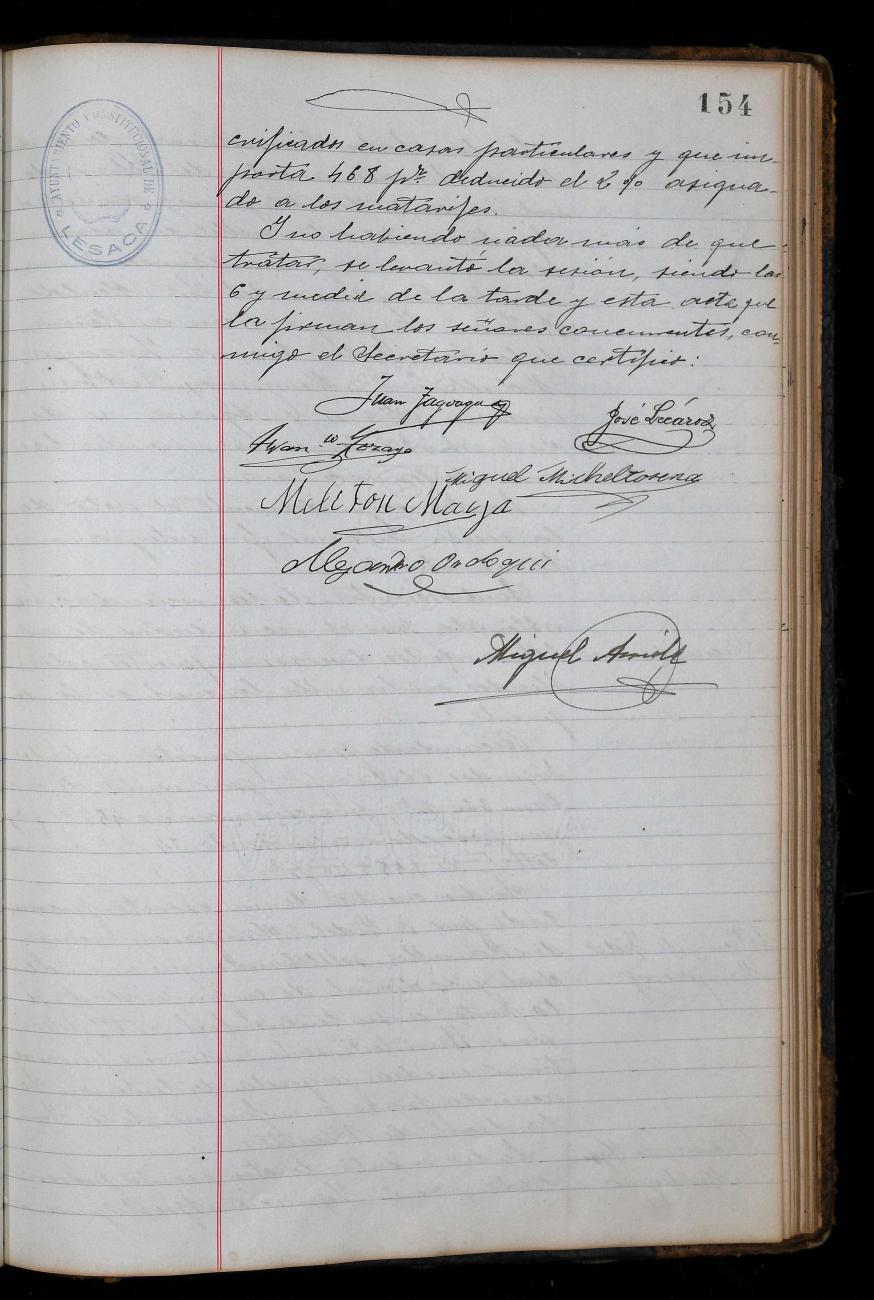 154
AYUNTAMIENTO CONSTITUCIONAL DE
LESACA
crificados en casas particulares y que im-
porta 468 pts. deducido el 2 % asigna-
do a los matarifes.
Y no habiendo nada más de que
tratar, se levantó la sesión, siendo las
6 y media de la tarde y esta acta que
la firman los señores concurrentes, con-
migo el Secretario que certifico:
Juan
José
Fran.co
Miguel Micheltorena
Meliton Maya
Alejandro Ordoqui
Miguel